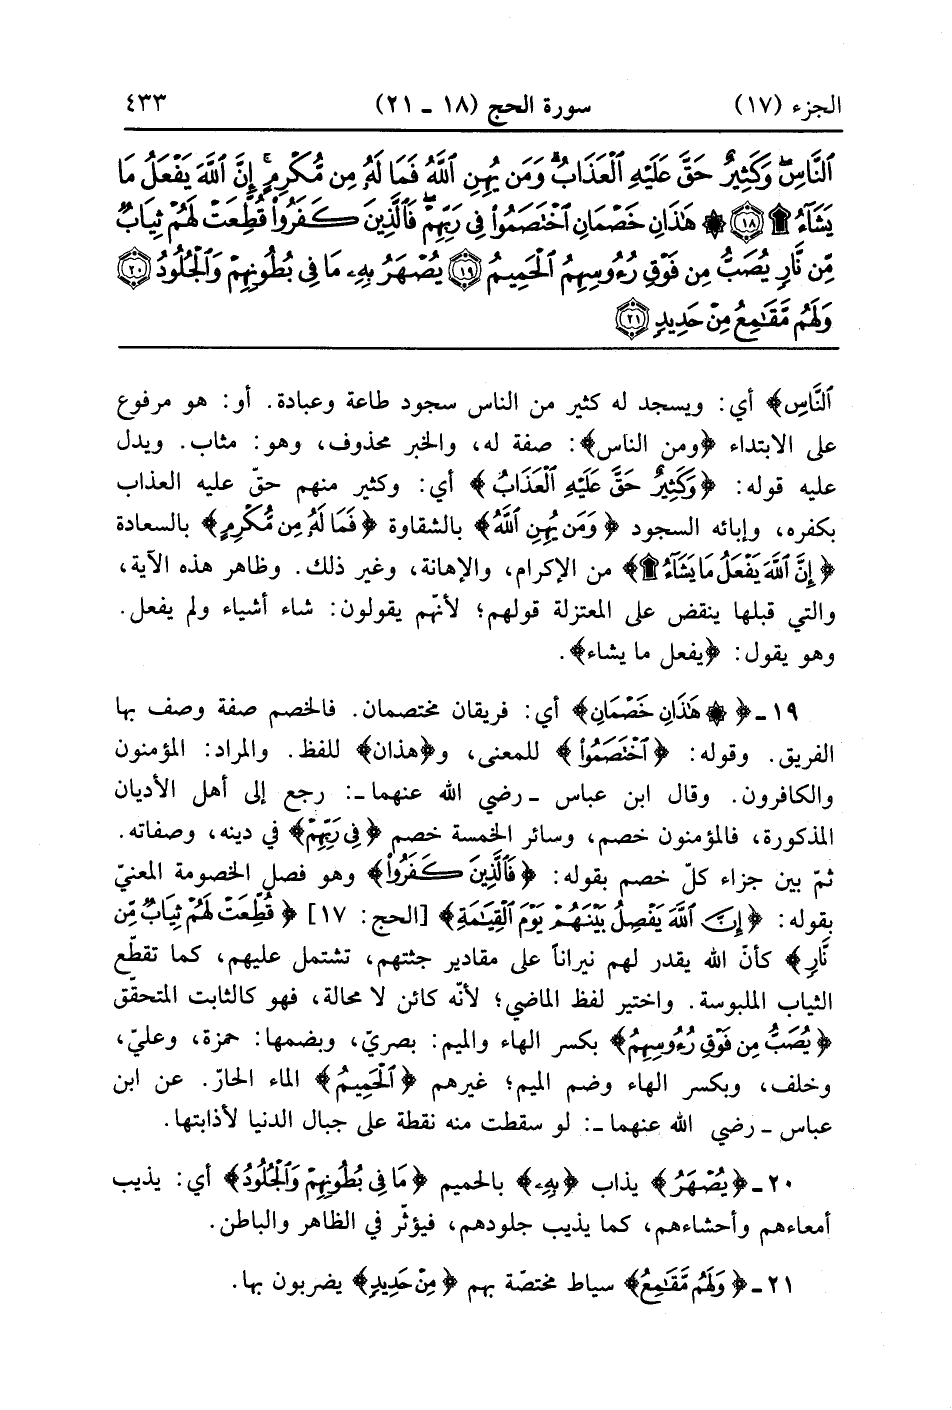 الجزء (١٧) سورة الحج (١٨ ـ ٢١) ٤٣٣
ٱلنَّاسِۖ وَكَثِيرٌ حَقَّ عَلَيْهِ ٱلْعَذَابُۗ وَمَن يُهِنِ ٱللَّهُ فَمَا لَهُۥ مِن مُّكْرِمٍۚ إِنَّ ٱللَّهَ يَفْعَلُ مَا
يَشَآءُ ۩ ﴿١٨﴾ ۞ هَٰذَانِ خَصْمَانِ ٱخْتَصَمُوا۟ فِى رَبِّهِمْۖ فَٱلَّذِينَ كَفَرُوا۟ قُطِّعَتْ لَهُمْ ثِيَابٌ
مِّن نَّارٍ يُصَبُّ مِن فَوْقِ رُءُوسِهِمُ ٱلْحَمِيمُ ﴿١٩﴾ يُصْهَرُ بِهِۦ مَا فِى بُطُونِهِمْ وَٱلْجُلُودُ ﴿٢٠﴾
وَلَهُم مَّقَٰمِعُ مِنْ حَدِيدٍ ﴿٢١﴾
ٱلنَّاسِ﴾ أي: ويسجد له كثير من الناس سجود طاعة وعبادة. أو: هو مرفوع
على الابتداء ﴿ومن الناس﴾: صفة له، والخبر محذوف، وهو: مثاب. ويدل
عليه قوله: ﴿وَكَثِيرٌ حَقَّ عَلَيْهِ ٱلْعَذَابُ﴾ أي: وكثير منهم حقّ عليه العذاب
بكفره، وإبائه السجود ﴿وَمَن يُهِنِ ٱللَّهُ﴾ بالشقاوة ﴿فَمَا لَهُۥ مِن مُّكْرِمٍ﴾ بالسعادة
﴿إِنَّ ٱللَّهَ يَفْعَلُ مَا يَشَآءُ ۩﴾ من الإكرام، والإهانة، وغير ذلك. وظاهر هذه الآية،
والتي قبلها ينقض على المعتزلة قولهم؛ لأنّهم يقولون: شاء أشياء ولم يفعل.
وهو يقول: ﴿يفعل ما يشاء﴾.
١٩ ـ ﴿۞ هَٰذَانِ خَصْمَانِ﴾ أي: فريقان مختصمان. فالخصم صفة وصف بها
الفريق. وقوله: ﴿ٱخْتَصَمُوا۟﴾ للمعنى، و﴿هذان﴾ للفظ. والمراد: المؤمنون
والكافرون. وقال ابن عباس ـ رضي الله عنهما ـ: رجع إلى أهل الأديان
المذكورة، فالمؤمنون خصم، وسائر الخمسة خصم ﴿فِى رَبِّهِمْ﴾ في دينه، وصفاته.
ثمّ بين جزاء كلّ خصم بقوله: ﴿فَٱلَّذِينَ كَفَرُوا۟﴾ وهو فصل الخصومة المعنيّ
بقوله: ﴿إِنَّ ٱللَّهَ يَفْصِلُ بَيْنَهُمْ يَوْمَ ٱلْقِيَٰمَةِ﴾ [الحج: ١٧] ﴿قُطِّعَتْ لَهُمْ ثِيَابٌ مِّن
نَّارٍ﴾ كأنّ الله يقدر لهم نيراناً على مقادير جثتهم، تشتمل عليهم، كما تقطّع
الثياب الملبوسة. واختير لفظ الماضي؛ لأنّه كائن لا محالة، فهو كالثابت المتحقّق
﴿يُصَبُّ مِن فَوْقِ رُءُوسِهِمُ﴾ بكسر الهاء والميم: بصريّ، وبضمها: حمزة، وعليّ،
وخلف، وبكسر الهاء وضم الميم؛ غيرهم ﴿ٱلْحَمِيمُ﴾ الماء الحارّ. عن ابن
عباس ـ رضي الله عنهما ـ: لو سقطت منه نقطة على جبال الدنيا لأذابتها.
٢٠ ـ ﴿يُصْهَرُ﴾ يذاب ﴿بِهِۦ﴾ بالحميم ﴿مَا فِى بُطُونِهِمْ وَٱلْجُلُودُ﴾ أي: يذيب
أمعاءهم وأحشاءهم، كما يذيب جلودهم، فيؤثّر في الظاهر والباطن.
٢١ ـ ﴿وَلَهُم مَّقَٰمِعُ﴾ سياط مختصّة بهم ﴿مِنْ حَدِيدٍ﴾ يضربون بها.